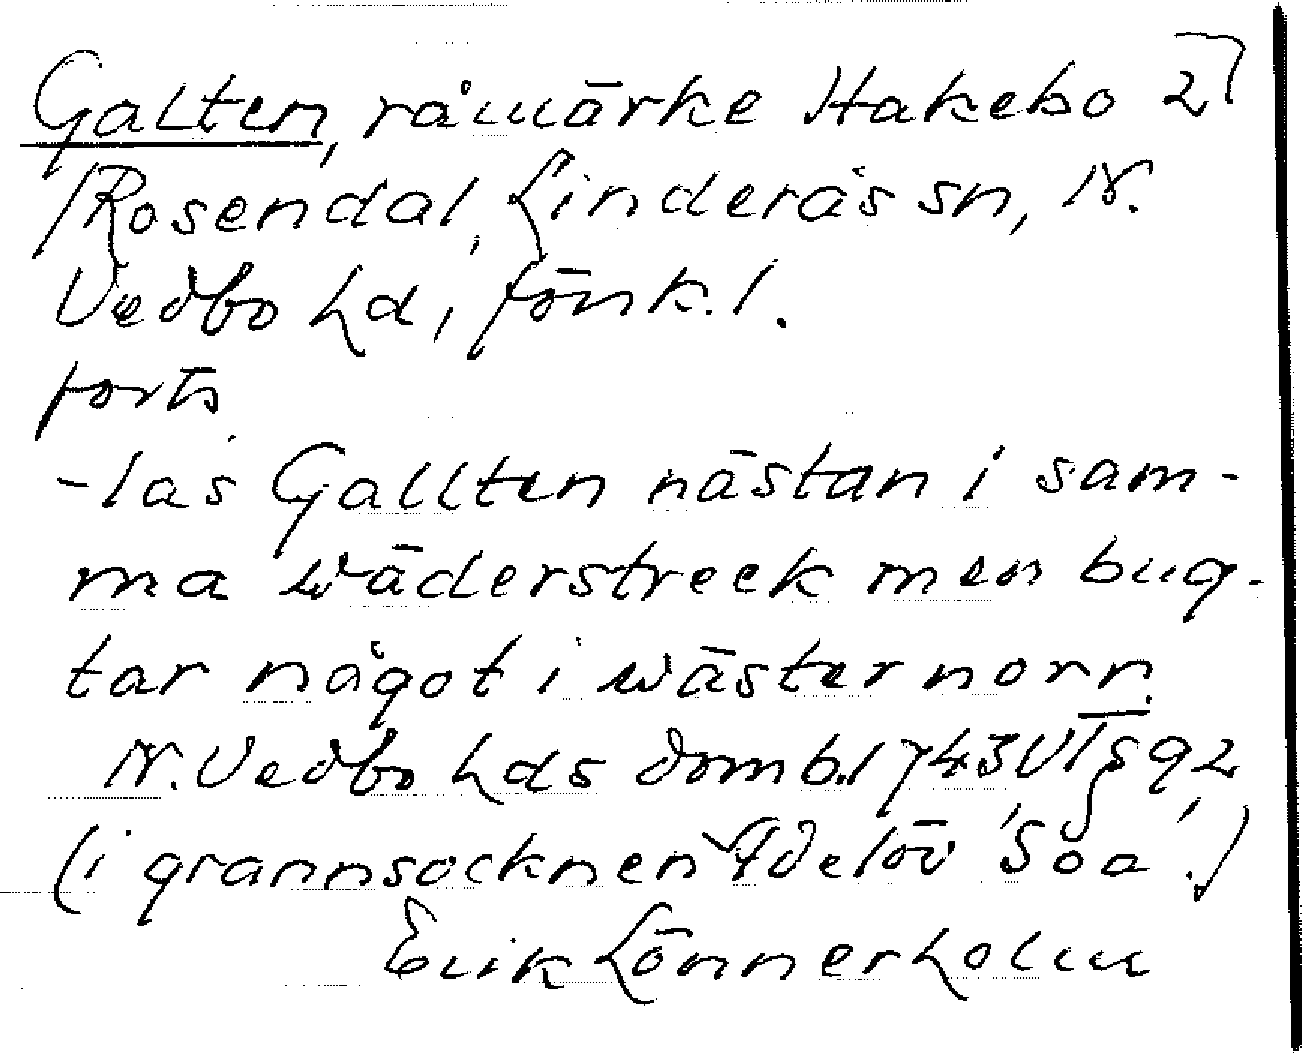 Galten, råmärke Hakebo 2)
/Rosendal, Linderås sn, N.
Vedbo hd, Jönk. l.
forts
-las Gallten nästan i sam-
ma wäderstreck men bug-
tar något i wäster norr.
N. Vedbo hds domb. 1743 VT § 92
(i grannsocknen Adelöv 'Söa'.)
Erik Lönnerholm